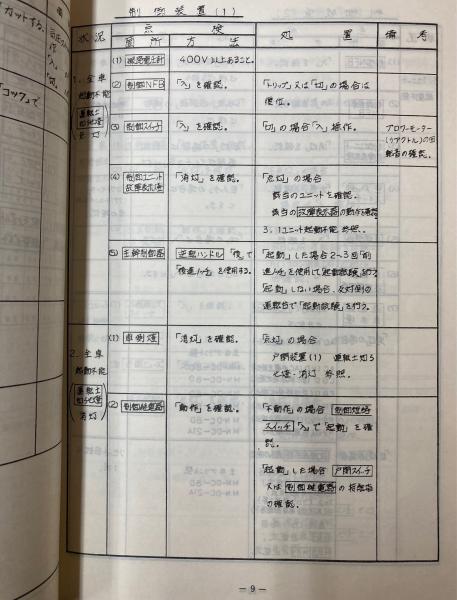 制御装置(1)
状況
点検
処置
備考
箇所
方法
1. 全車
起動不能
運転士
知らせ燈
点灯
(1) 架空電圧計
400V以上あること。
(2) 制御NFB
「入」を確認。
「トリップ」又は「切」の場合は
復位。
(3) 制御スイッチ
「入」を確認。
「切」の場合「入」操作。
ブロワーモーター
(リアクトル)の回
転音の確認。
(4) 制御ユニット
故障表示燈
「消灯」を確認。
「点灯」の場合
該当のユニットを確認。
該当の故障表示器の動作確認
3. 1ユニット起動不能 参照。
(5) 主幹制御器
逆転ハンドル「後」で
「後進1ノッチ」を使用する。
「起動」した場合2~3回「前
進1ノッチ」を使用して「起動試験」を行う
「起動」しない場合、反対側の
運転台で「起動試験」を行う。
2. 全車
起動不能
運転士
知らせ燈
消灯
(1) 車側燈
「消灯」を確認。
「点灯」の場合
戸閉装置(1) 運転士知ら
せ燈・消灯 参照。
(2) 制御継電器
「動作」を確認。
「不動作」の場合 制御短絡
スイッチ「入」で「起動」を確
認。
「起動」した場合 戸閉スイッチ
又は制御継電器の
の確認。
— 9 —